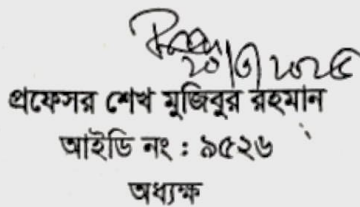 ২০/৩/২০২৫
প্রফেসর শেখ মুজিবুর রহমান
আইডি নং : ৯৫২৬
অধ্যক্ষ